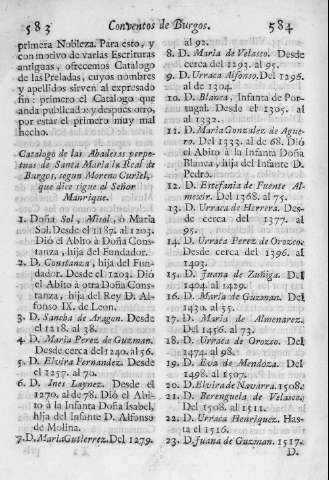 583 Conventos de Burgos. 584
primera Nobleza. Para esto, y
con motivo de varias Escrituras
antiguas, ofrecemos Catalogo
de las Preladas, cuyos nombres
y apellidos sirven al expresado
fin: primero el Catalogo que
anda publicado: y despues otro,
por estar el primero muy mal
hecho.
Catalogo de las Abadesas perpe-
tuas de Santa Maria la Real de
Burgos, segun Moreno Curiel,
que dice sigue al Señor
Manrique.
1. Doña Sol, Misol, ò Maria
Sol. Desde el 1187. al 1203.
Diò el Abito à Doña Cons-
tanza, hija del Fundador.
2. D. Constanza, hija del Fun-
dador. Desde el 1203. Diò
el Abito à otra Doña Cons-
tanza, hija del Rey D. Al-
fonso IX. de Leon.
3. D. Sancha de Aragon. Desde
el 1218. al 38.
4. D. Maria Perez de Guzman.
Desde cerca del 1240. al 56.
5. D. Elvira Fernandez. Desde
el 1257. al 70.
6. D. Ines Laynez. Desde el
1270. al de 78. Diò el Abi-
to à la Infanta Doña Isabel,
hija del Infante D. Alfonso
de Molina.
7. D. Maria Gutierrez. Del 1279.
al 92.
8. D. Maria de Velasco. Desde
cerca del 1293. al 95.
9. D. Urraca Alfonso. Del 1296.
al de 1304.
10. D. Blanca, Infanta de Por-
tugal. Desde el 1305. al
al 1332.
11. D. Maria Gonzalez de Ague-
ro. Del 1333. al de 68. Diò
el Abito à la Infanta Doña
Blanca, hija del Infante D.
Pedro.
12. D. Estefania de Fuente Al-
mexir. Del 1368. al 75.
13. D. Urraca de Herrera. Des-
de cerca del 1377. al
95.
14. D. Urraca Perez de Orozco.
Desde cerca del 1396. al
1403.
15. D. Juana de Zuñiga. Del
1404. al 1429.
16. D. Maria de Guzman. Del
1430. al 55.
17. D. Maria de Almenarez.
Del 1456. al 73.
18. D. Urraca de Orozco. Del
1474. al 98.
19. D. Eva de Mendoza. Del
1498. al 1507.
20. D. Elvira de Navarra. 1508.
21. D. Berenguela de Velasco.
Del 1508. al 1511.
22. D. Urraca Henriquez. Has-
ta el 1516.
23. D. Juana de Guzman. 1517.
D.